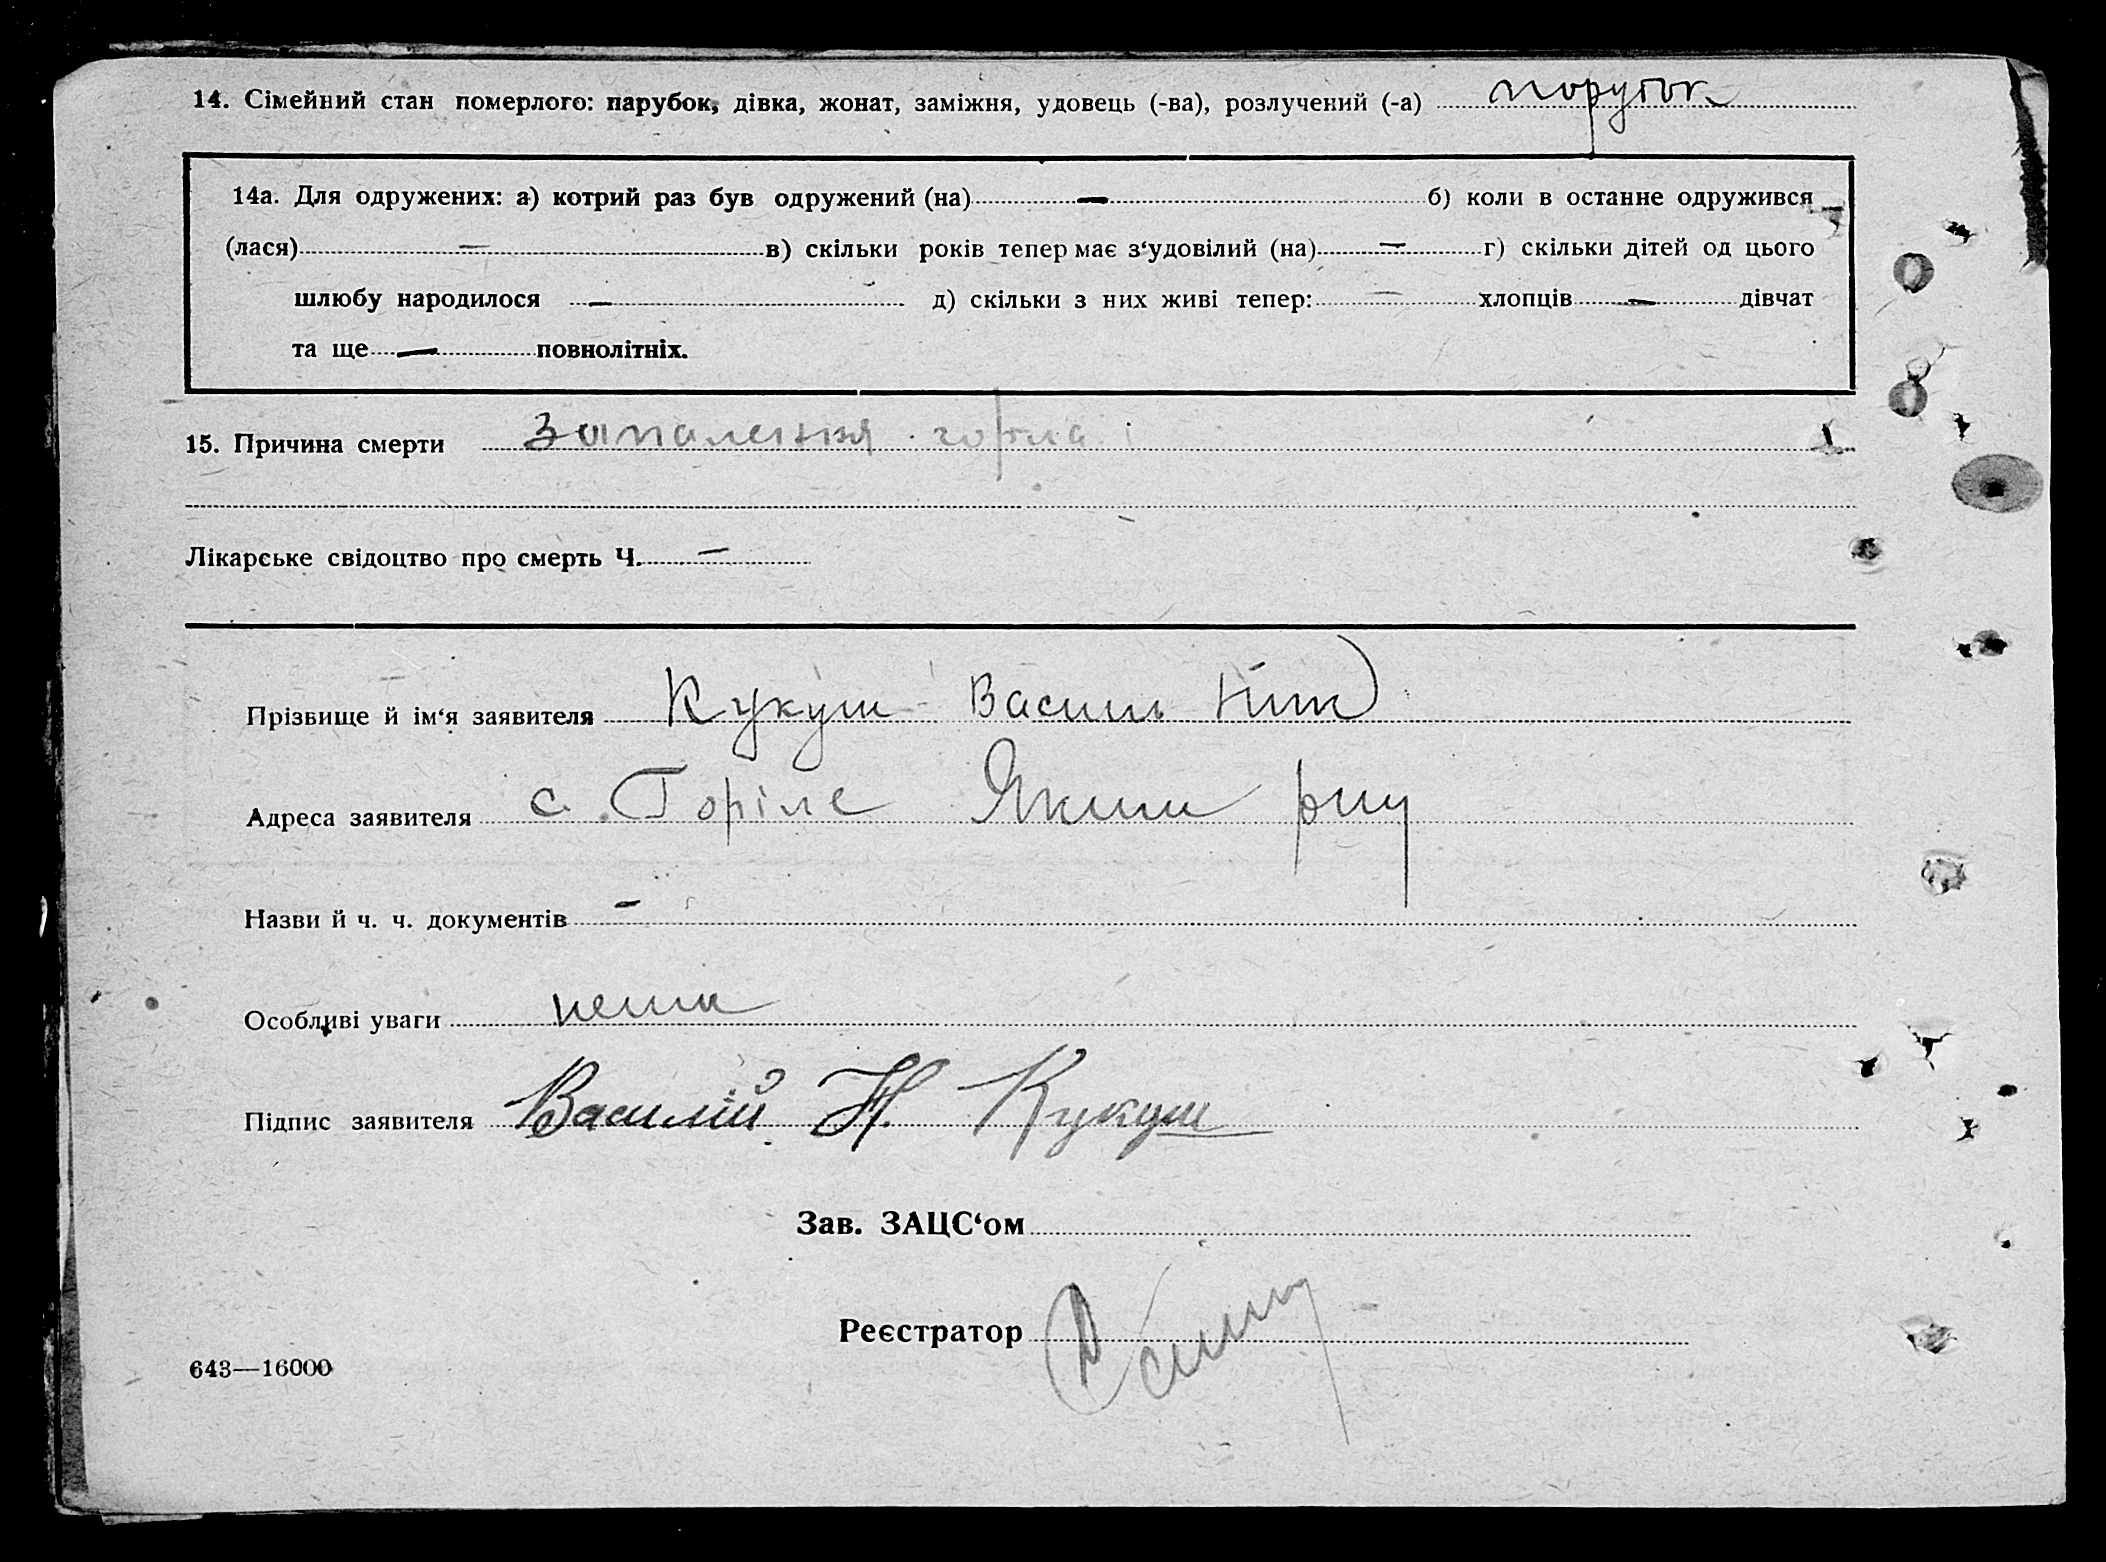 14. Сімейний стан померлого: парубок, дівка, жонат, заміжня, удовець (-ва), розлучений (-а) парубок
14а. Для одружених: а) котрий раз був одружений (на) — б) коли в останне одружився —
(лася) — в) скільки років тепер має з‘удовілий (на) — г) скільки дітей од цього
шлюбу народилося — д) скільки з них живі тепер: — хлопців — дівчат
та ще — повнолітніх.
15. Причина смерти Запалення горла
Лікарське свідоцтво про смерть Ч. —
Прізвище й ім‘я заявителя Кукуш Василь
Адреса заявителя с. Горіле Яким
Назви й ч. ч. документів —
Особливі уваги нема
Підпис заявителя Василій Н. Кукуш
Зав. ЗАЦС‘ом
Реєстратор
643—16000